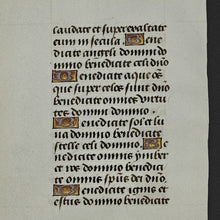 laudate et superexaltate
eum in secula. Bene
dicite angeli domini do
mino benedicite celi dno
Benedicite aque oēs
que super celos sunt dno
benedicite omnes virtu
tes domini domino.
Benedicite sol et lu
na domino benedicite
stelle celi domino. Be
nedicite omnis ymber
et ros domino benedici
te omnis spūs dei dno
Benedicite ignis et
estus domino benedicite